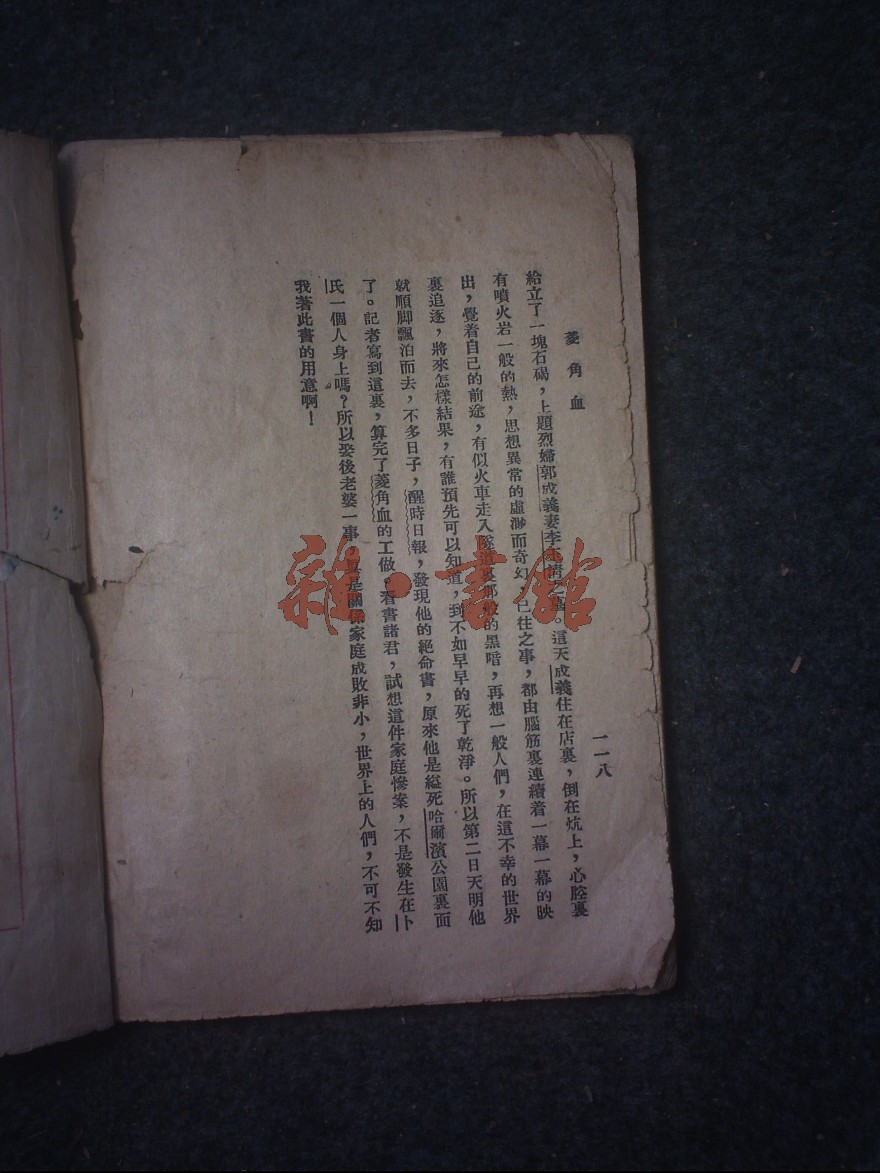 菱角血
一一八
給立了一塊石碣，上題烈婦郭成義妻李 情 墓。這天成義住在店裏，倒在炕上，心腔裏
有噴火岩一般的熱，思想異常的虛渺而奇幻，已往之事，都由腦筋裏連續着一幕一幕的映
出，覺着自己的前途，有似火車走入隧道裏那般的黑暗，再想一般人們，在這不幸的世界
裏追逐，將來怎樣結果，有誰預先可以知道，到不如早早的死了乾淨。所以第二日天明他
就順脚飄泊而去，不多日子，醒時日報，發現他的絕命書，原來他是縊死哈爾濱公園裏面
了。記者寫到這裏，算完了菱角血的工做。看書諸君，試想這件家庭慘案，不是發生在卜
氏一個人身上嗎？所以娶後老婆一事， 是關係家庭成敗非小，世界上的人們，不可不知
我著此書的用意啊！
雜·書館